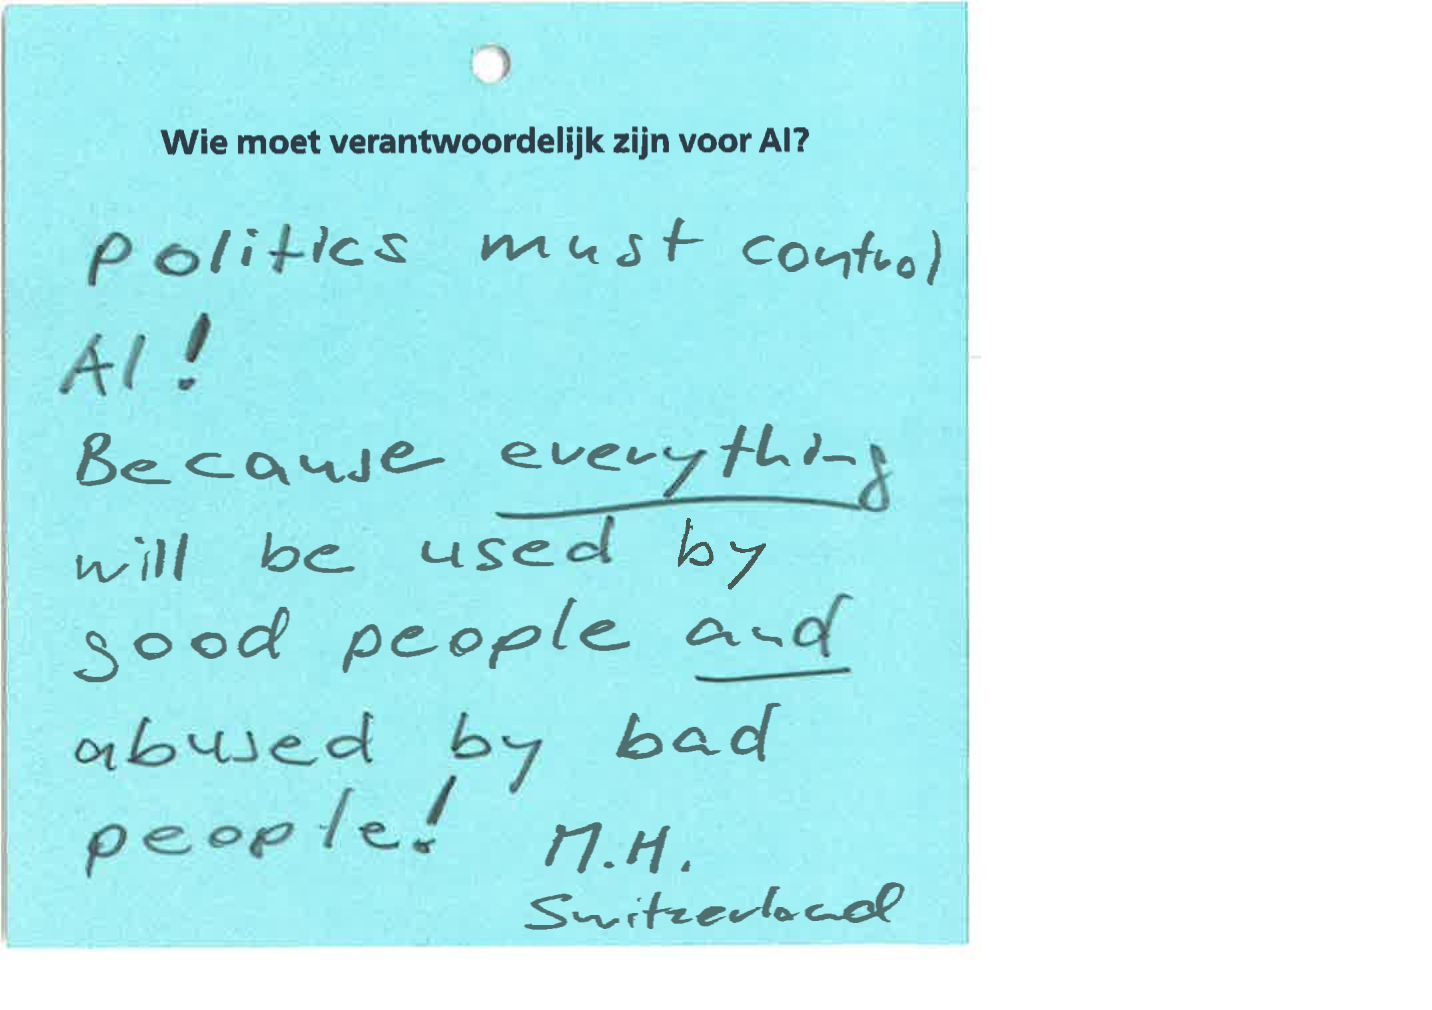 Wie moet verantwoordelijk zijn voor AI?
politics must control
AI!
Because everything
will be used by
good people and
abused by bad
people!
M.H.
Switzerland